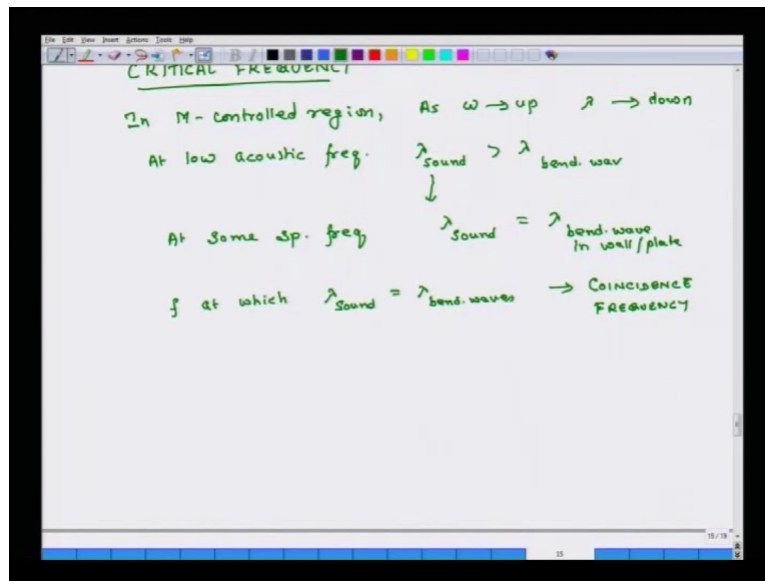 File Edit View Insert Actions Tools Help
CRITICAL FREQUENCY
In M-controlled region, As ω → up λ → down
At low acoustic freq. λ sound > λ bend. wav
↓
At some sp. freq λ sound = λ bend. wave in wall/plate
f at which λ sound = λ bend. waves → COINCIDENCE FREQUENCY
15/15
15